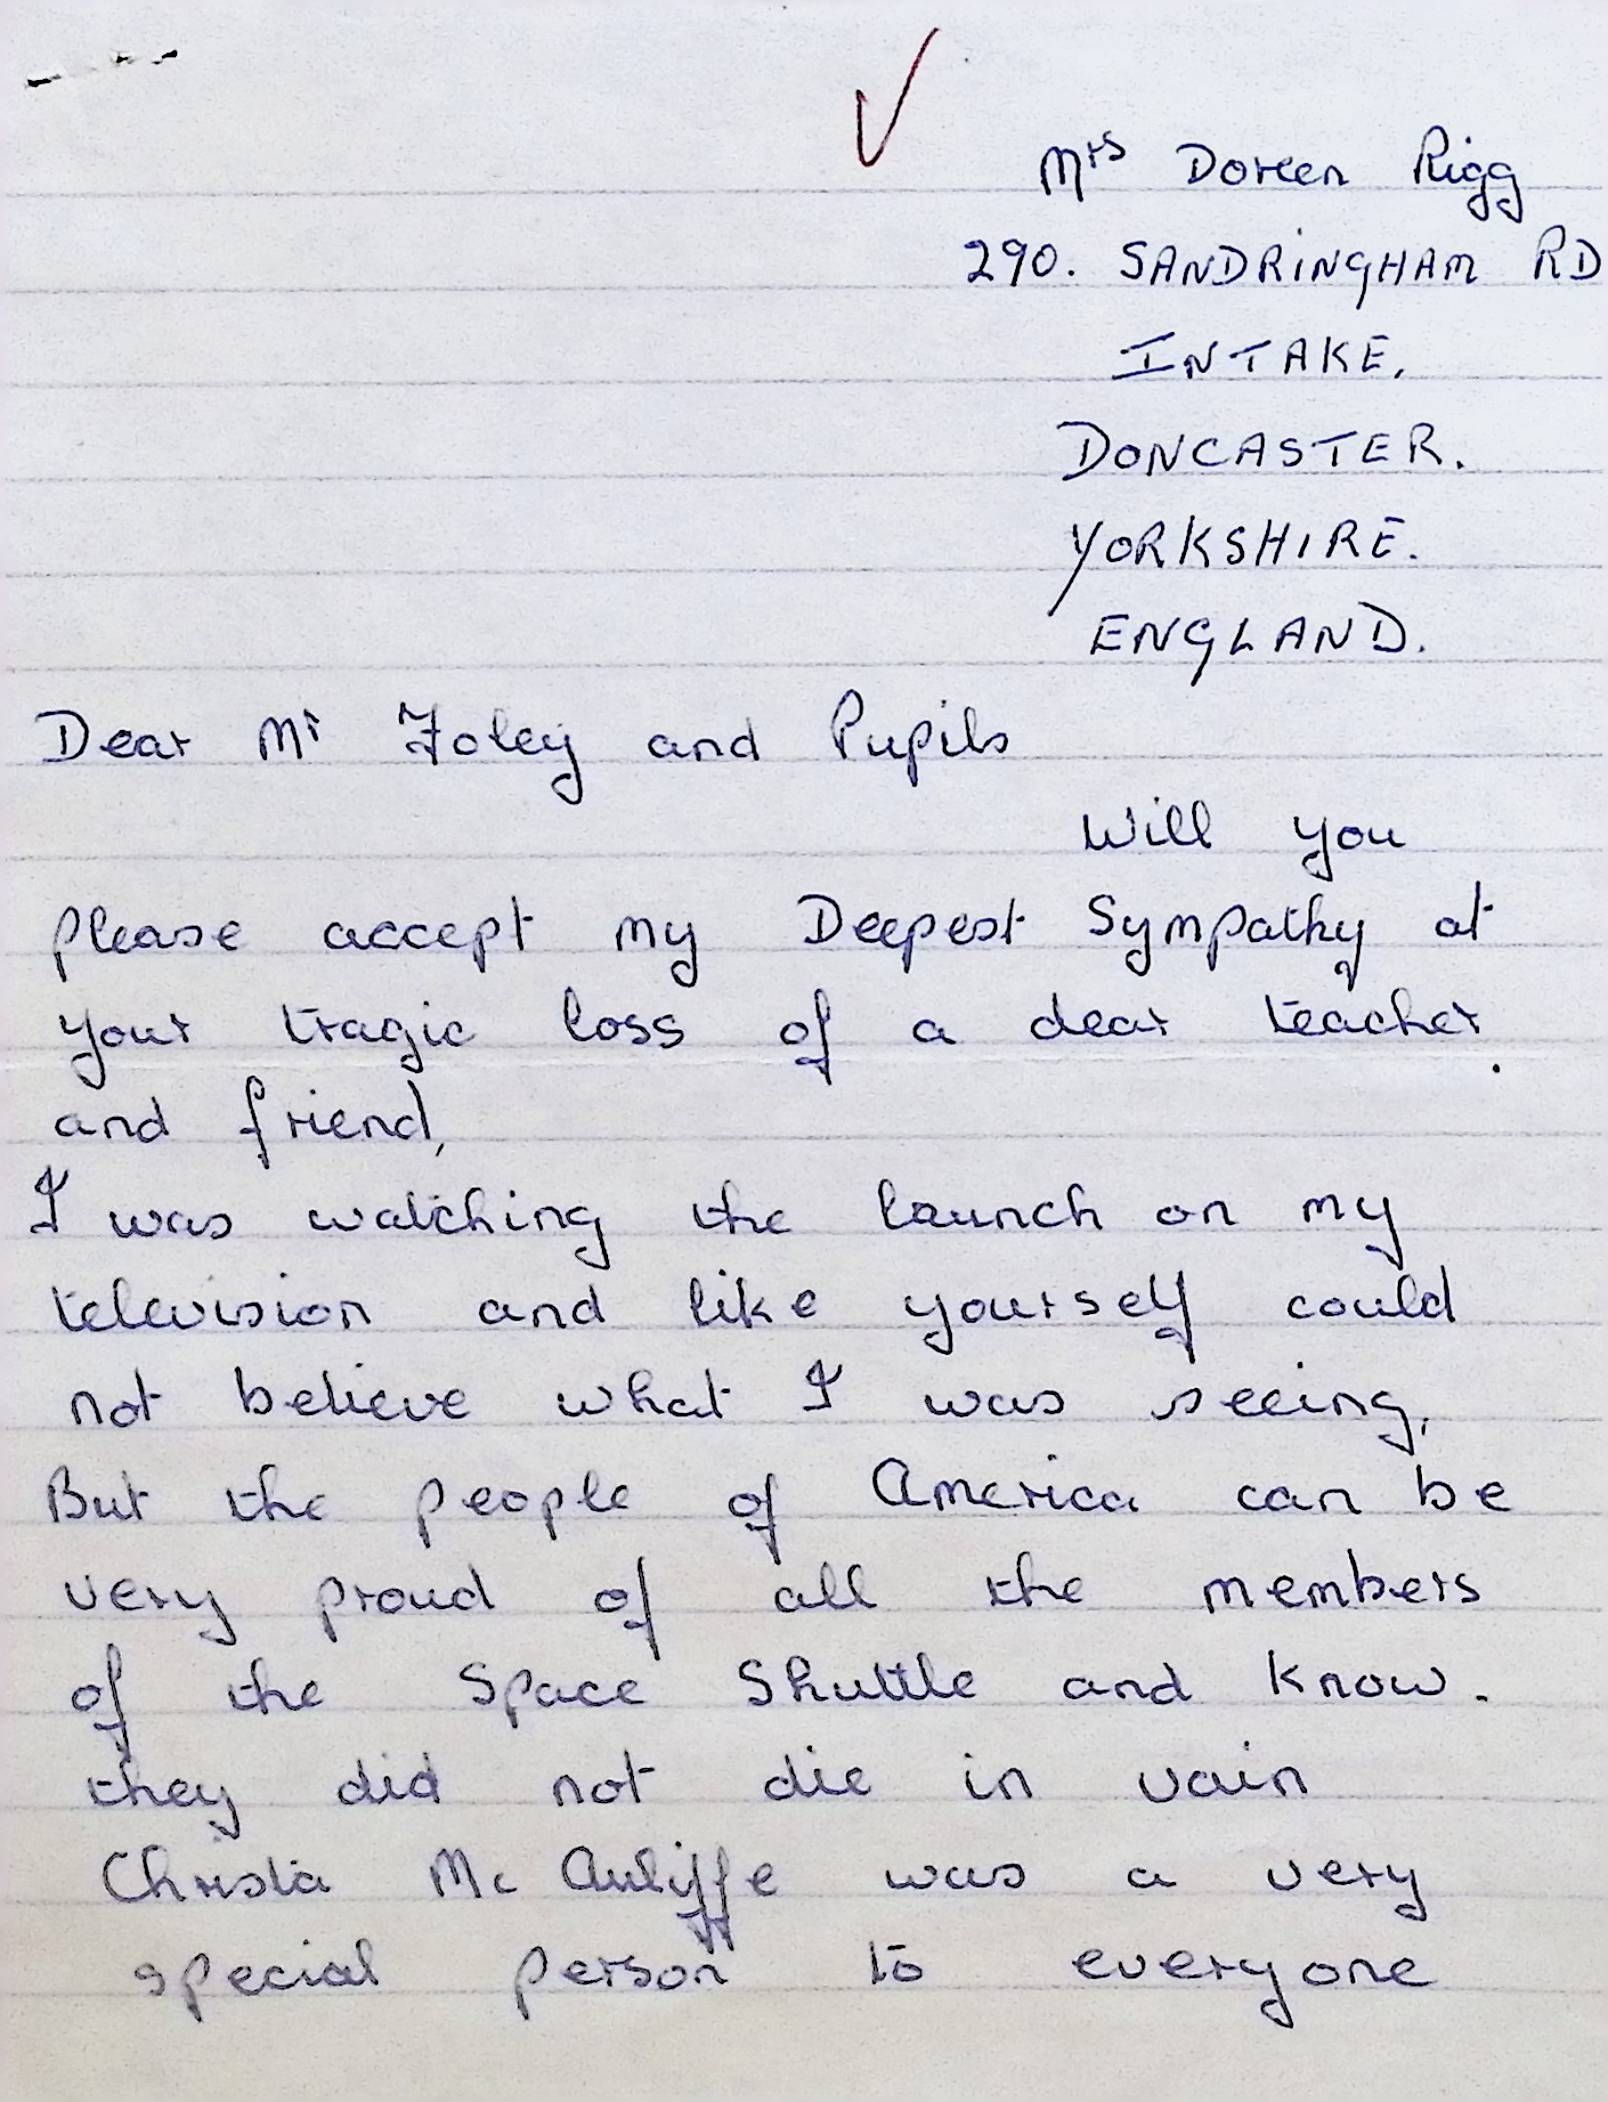 Mrs Doreen Rigg
290. SANDRINGHAM RD
INTAKE.
DONCASTER.
YORKSHIRE.
ENGLAND.
Dear Mr Foley and Pupils
Will you
please accept my Deepest Sympathy at
your tragic loss of a dear teacher.
and friend,
I was watching the launch on my
television and like yourself could
not believe what I was seeing,
But the people of America can be
very proud of all the members
of the Space Shuttle and know.
they did not die in vain
Christa Mc Auliffe was a very
special person to everyone